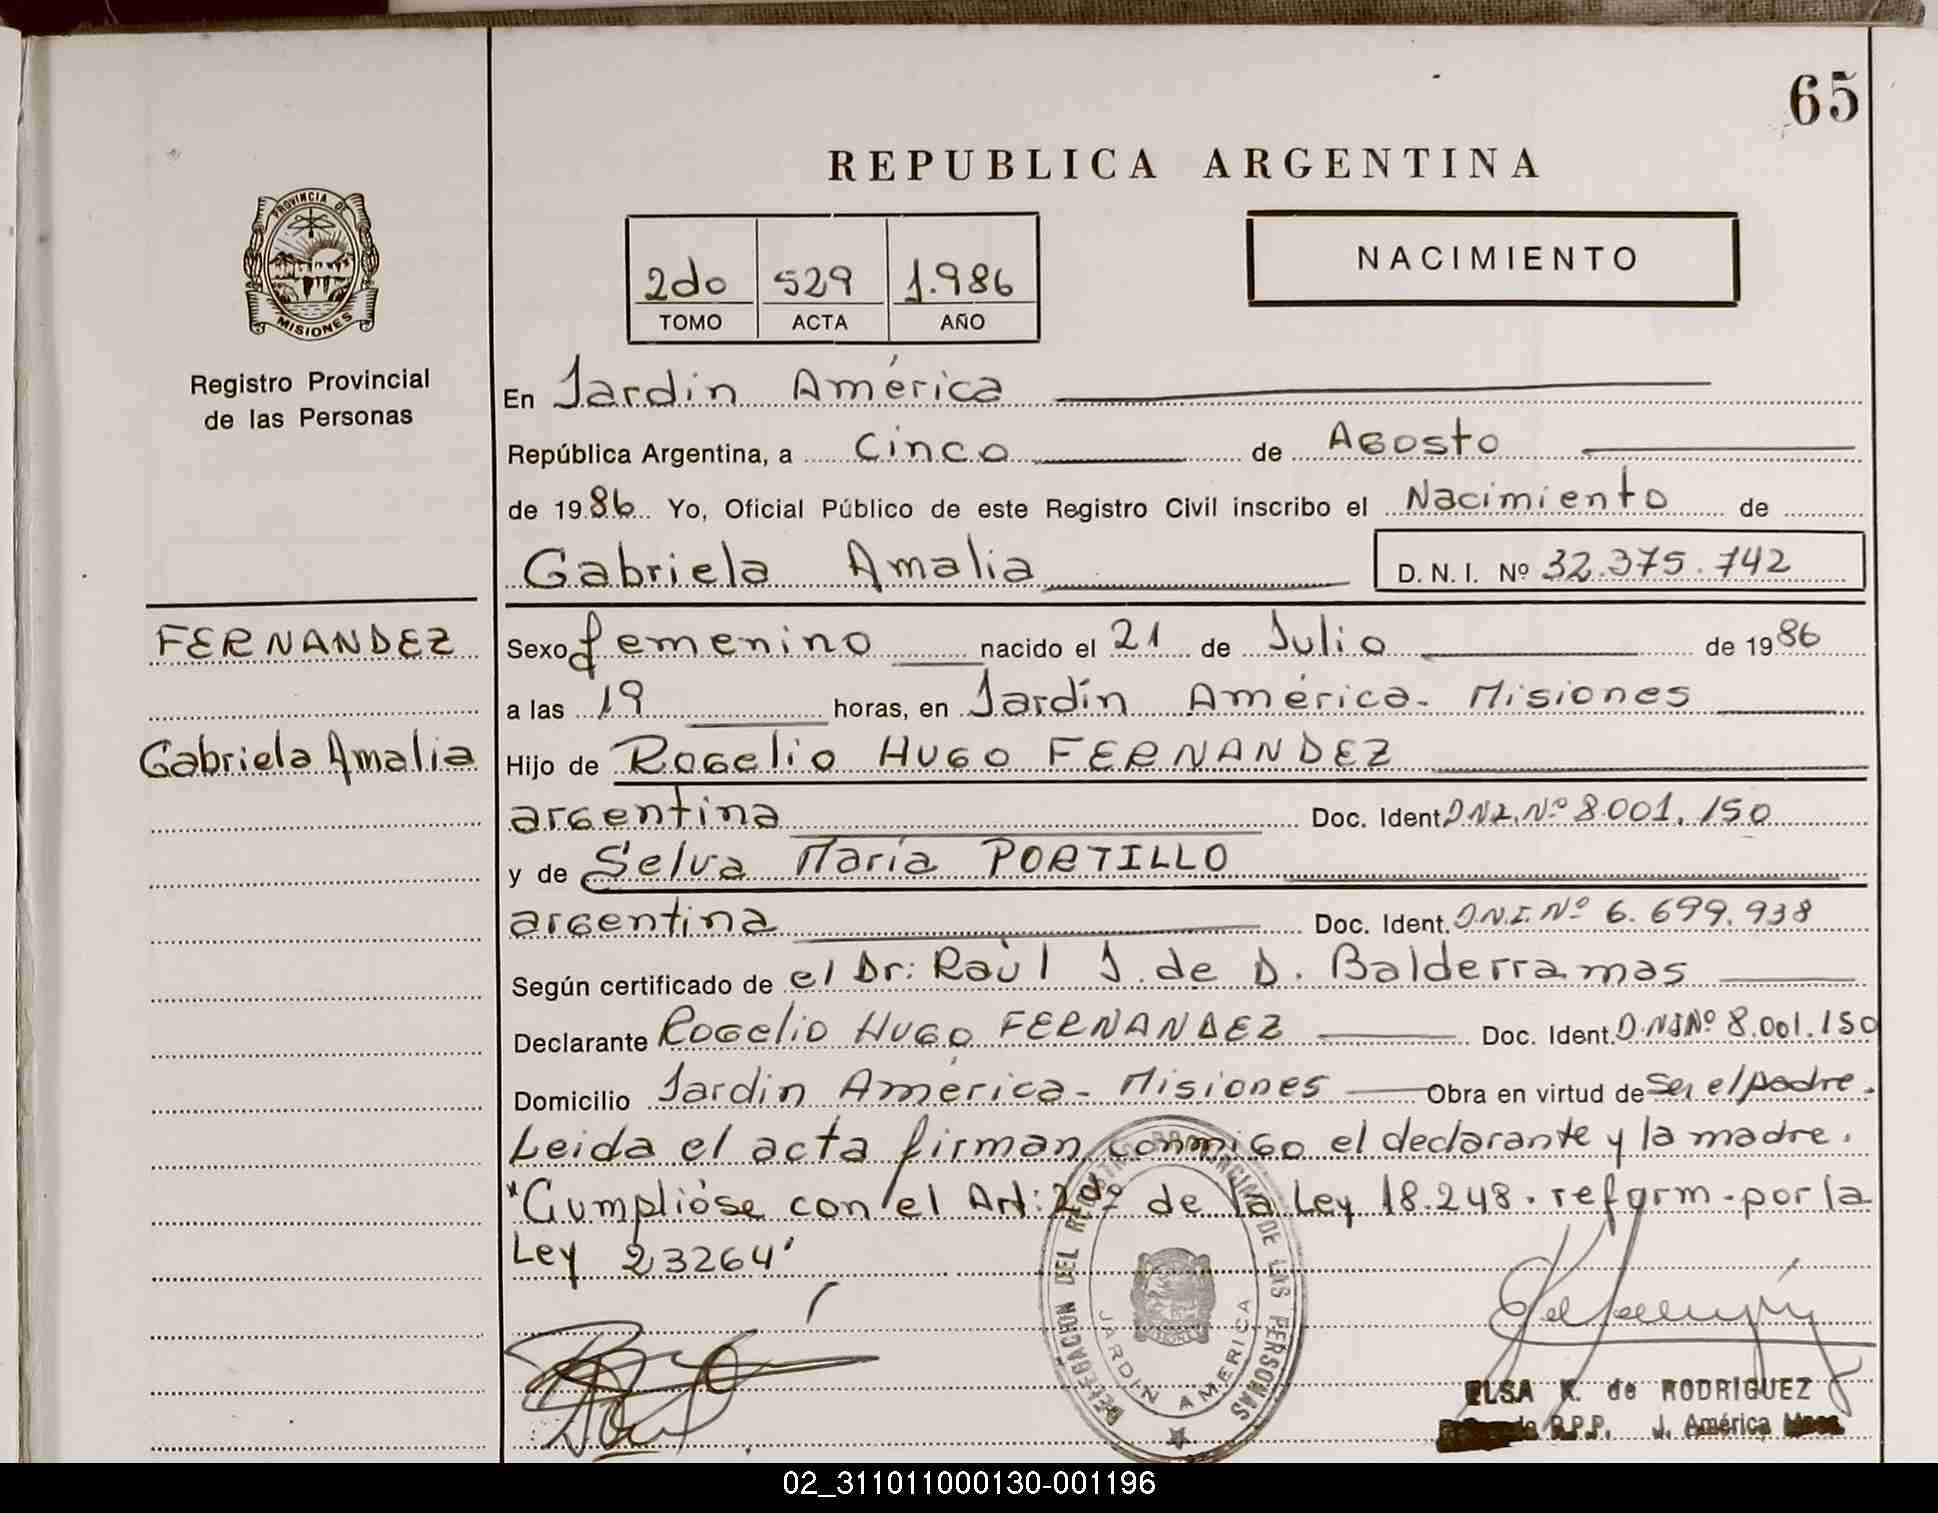 65
REPUBLICA ARGENTINA
PROVINCIA DE
MISIONES
Registro Provincial
de las Personas
2do 529 1.986
TOMO ACTA AÑO
NACIMIENTO
En Jardin América
República Argentina, a Cinco de Agosto
de 1986 Yo, Oficial Público de este Registro Civil inscribo el Nacimiento de
Gabriela Amalia D. N. I. Nº 32.375.742
FERNANDEZ
Gabriela Amalia
Sexo femenino nacido el 21 de Julio de 1986
a las 19 horas, en Jardín América - Misiones
Hijo de Rogelio Hugo FERNANDEZ
argentina Doc. Ident. D.N.I. Nº 8.001.150
y de Selva María PORTILLO
argentina Doc. Ident. D.N.I. Nº 6.699.938
Según certificado de el Dr: Raùl J. de D. Balderramas
Declarante Rogelio Hugo FERNANDEZ Doc. Ident. D.N.I Nº 8.001.150
Domicilio Jardin América - Misiones Obra en virtud de ser el padre.
Leida el acta firman conmigo el declarante y la madre.
"Cumplióse con el Art: 2do de la Ley 18.248. reform. por la
Ley 23264"
DELEGACION DEL REGISTRO PROVINCIAL DE LAS PERSONAS
JARDIN AMERICA
ELSA K. de RODRIGUEZ
R.P.P. J. América
02_311011000130-001196